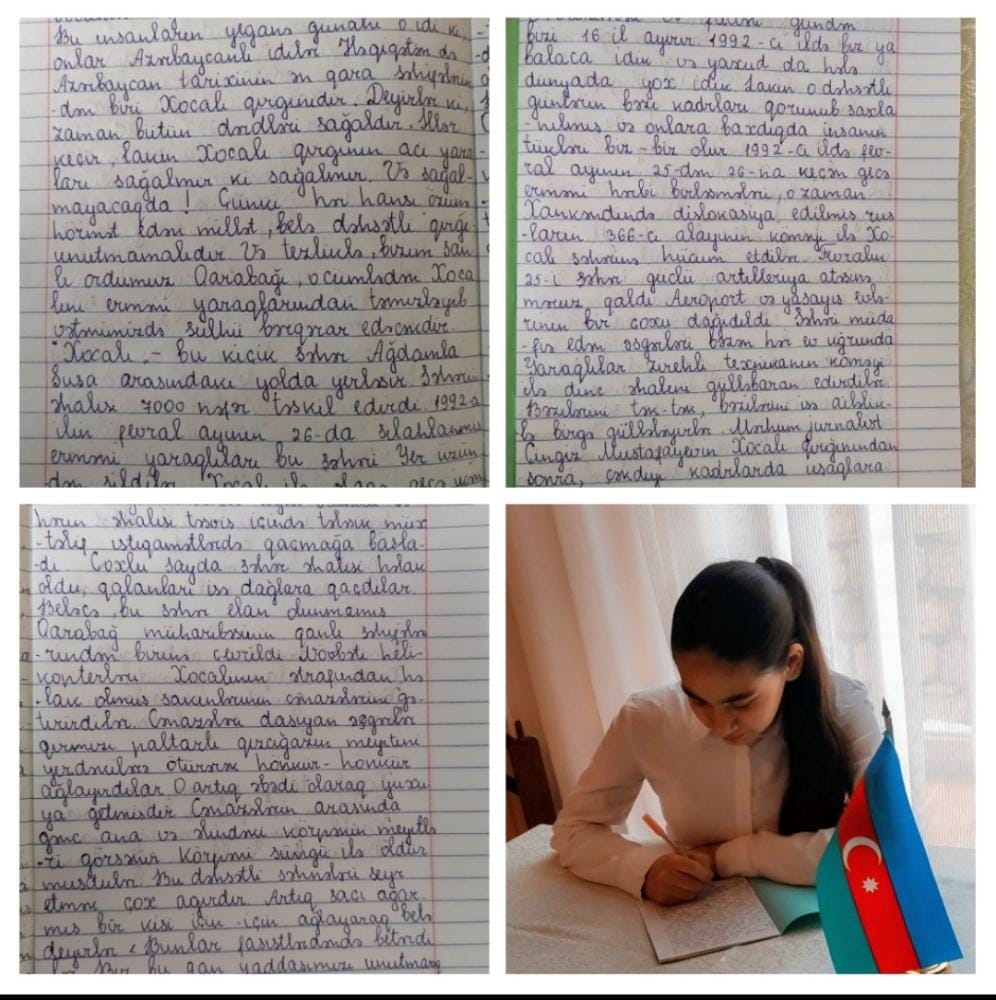 Bu insanların yeganə günahı o idi ki,
onlar Azərbaycanlı idilər. Həqiqətən də
Azərbaycan tarixinin ən qara səhifələrin
-dən biri Xocalı qırğınıdır. Deyirlər ki,
zaman bütün dərdləri sağaldır. İllər
keçir, lakin Xocalı qırğının acı yara
ları sağalmır ki sağalmır. Və sağal-
mayacaqda! Çünki hər hansı özünə
hörmət edən millət, belə dəhşətli qırğı
unutmamalıdır. Və tezliklə, bizim şan
lı ordumuz Qarabağı, o cümlədən Xoca
lını erməni yaraqlarından təmizləyib
vətənimizdə sülhü bərqərar edəcəkdir.
"Xocalı - bu kiçik şəhər Ağdamla
Şuşa arasındakı yolda yerləşir. Şəhərin
əhalisi 7000 nəfər təşkil edirdi. 1992-ci
ilin fevral ayının 26-da silahlanmış
erməni yaraqlıları bu şəhəri Yer üzün
dən sildilər. Xocalı ilə
gündən
bizi 16 il ayırır. 1992-ci ildə biz ya
balaca idik və yaxud da hələ
dünyada yox idik. Lakin o dəhşətli
günlərin bəzi kadrları qorunub saxla
-nılmış və onlara baxdıqda insanın
tükləri biz-biz olur. 1992-ci ildə fev-
ral ayının 25-dən 26-na keçən gecə
erməni hərbi birləşmələri, o zaman
Xankəndində dislokasiya edilmiş rus
-ların 366-cı alayının köməyi ilə Xo-
calı şəhərinə hücum etdilər. Fevralın
25-i şəhər güclü artilleriya atəşinə
məruz qaldı. Aeroport və yaşayış evlə-
rinin bir çoxu dağıdıldı. Şəhəri müda
-fiə edən əsgərləri bəzən hər ev uğrunda
Yaraqlılar zirehli texnikanın köməyi
ilə dinc əhalini güllələbaran edirdilər
Bəzilərini tək-tək, bəzilərini isə ailəliк-
lə birgə güllələyirlər. Mərhum jurnalist
Çingiz Mustafayevin Xocalı qırğınından
sonra, çəkdiyi kadrlarda uşaqlara
hərin əhalisi təşviş içində tələsik müx
-təlif istiqamətlərdə qaçmağa başla-
-dı. Çoxlu sayda şəhər əhalisi həlak
oldu, qalanları isə dağlara qaçdılar.
Beləcə, bu şəhər elan olunmamış
Qarabağ müharibəsinin qanlı səhifələ
-rindən birinə çevrildi. Növbəti heli-
-kopterləri Xocalının ətrafından hə
-lak olmuş sakinlərinin cənazələrini gə-
tirirdilər. Cənazələri daşıyan əsgərlər
qırmızı paltarlı qızcığazın meyitini
yerdəncilən ötürərək hönkür-hönkür
ağlayırdılar. O artıq əbədi olaraq yuxu
ya getmişdir. Cənazələrin arasında
gənc ana və əlindəki körpənin meyitlə
-ri görsənir. Körpəni süngü ilə öldür
müşdülər. Bu dəhşətli səhnələri seyr
etmək çox ağırdır. Artıq saçı ağar
mış bir kişi için-için ağlayaraq belə
deyirlər « Bunlar faşistlərdəndə betərdi
Biz bu qan yaddaşımızı unutmaq